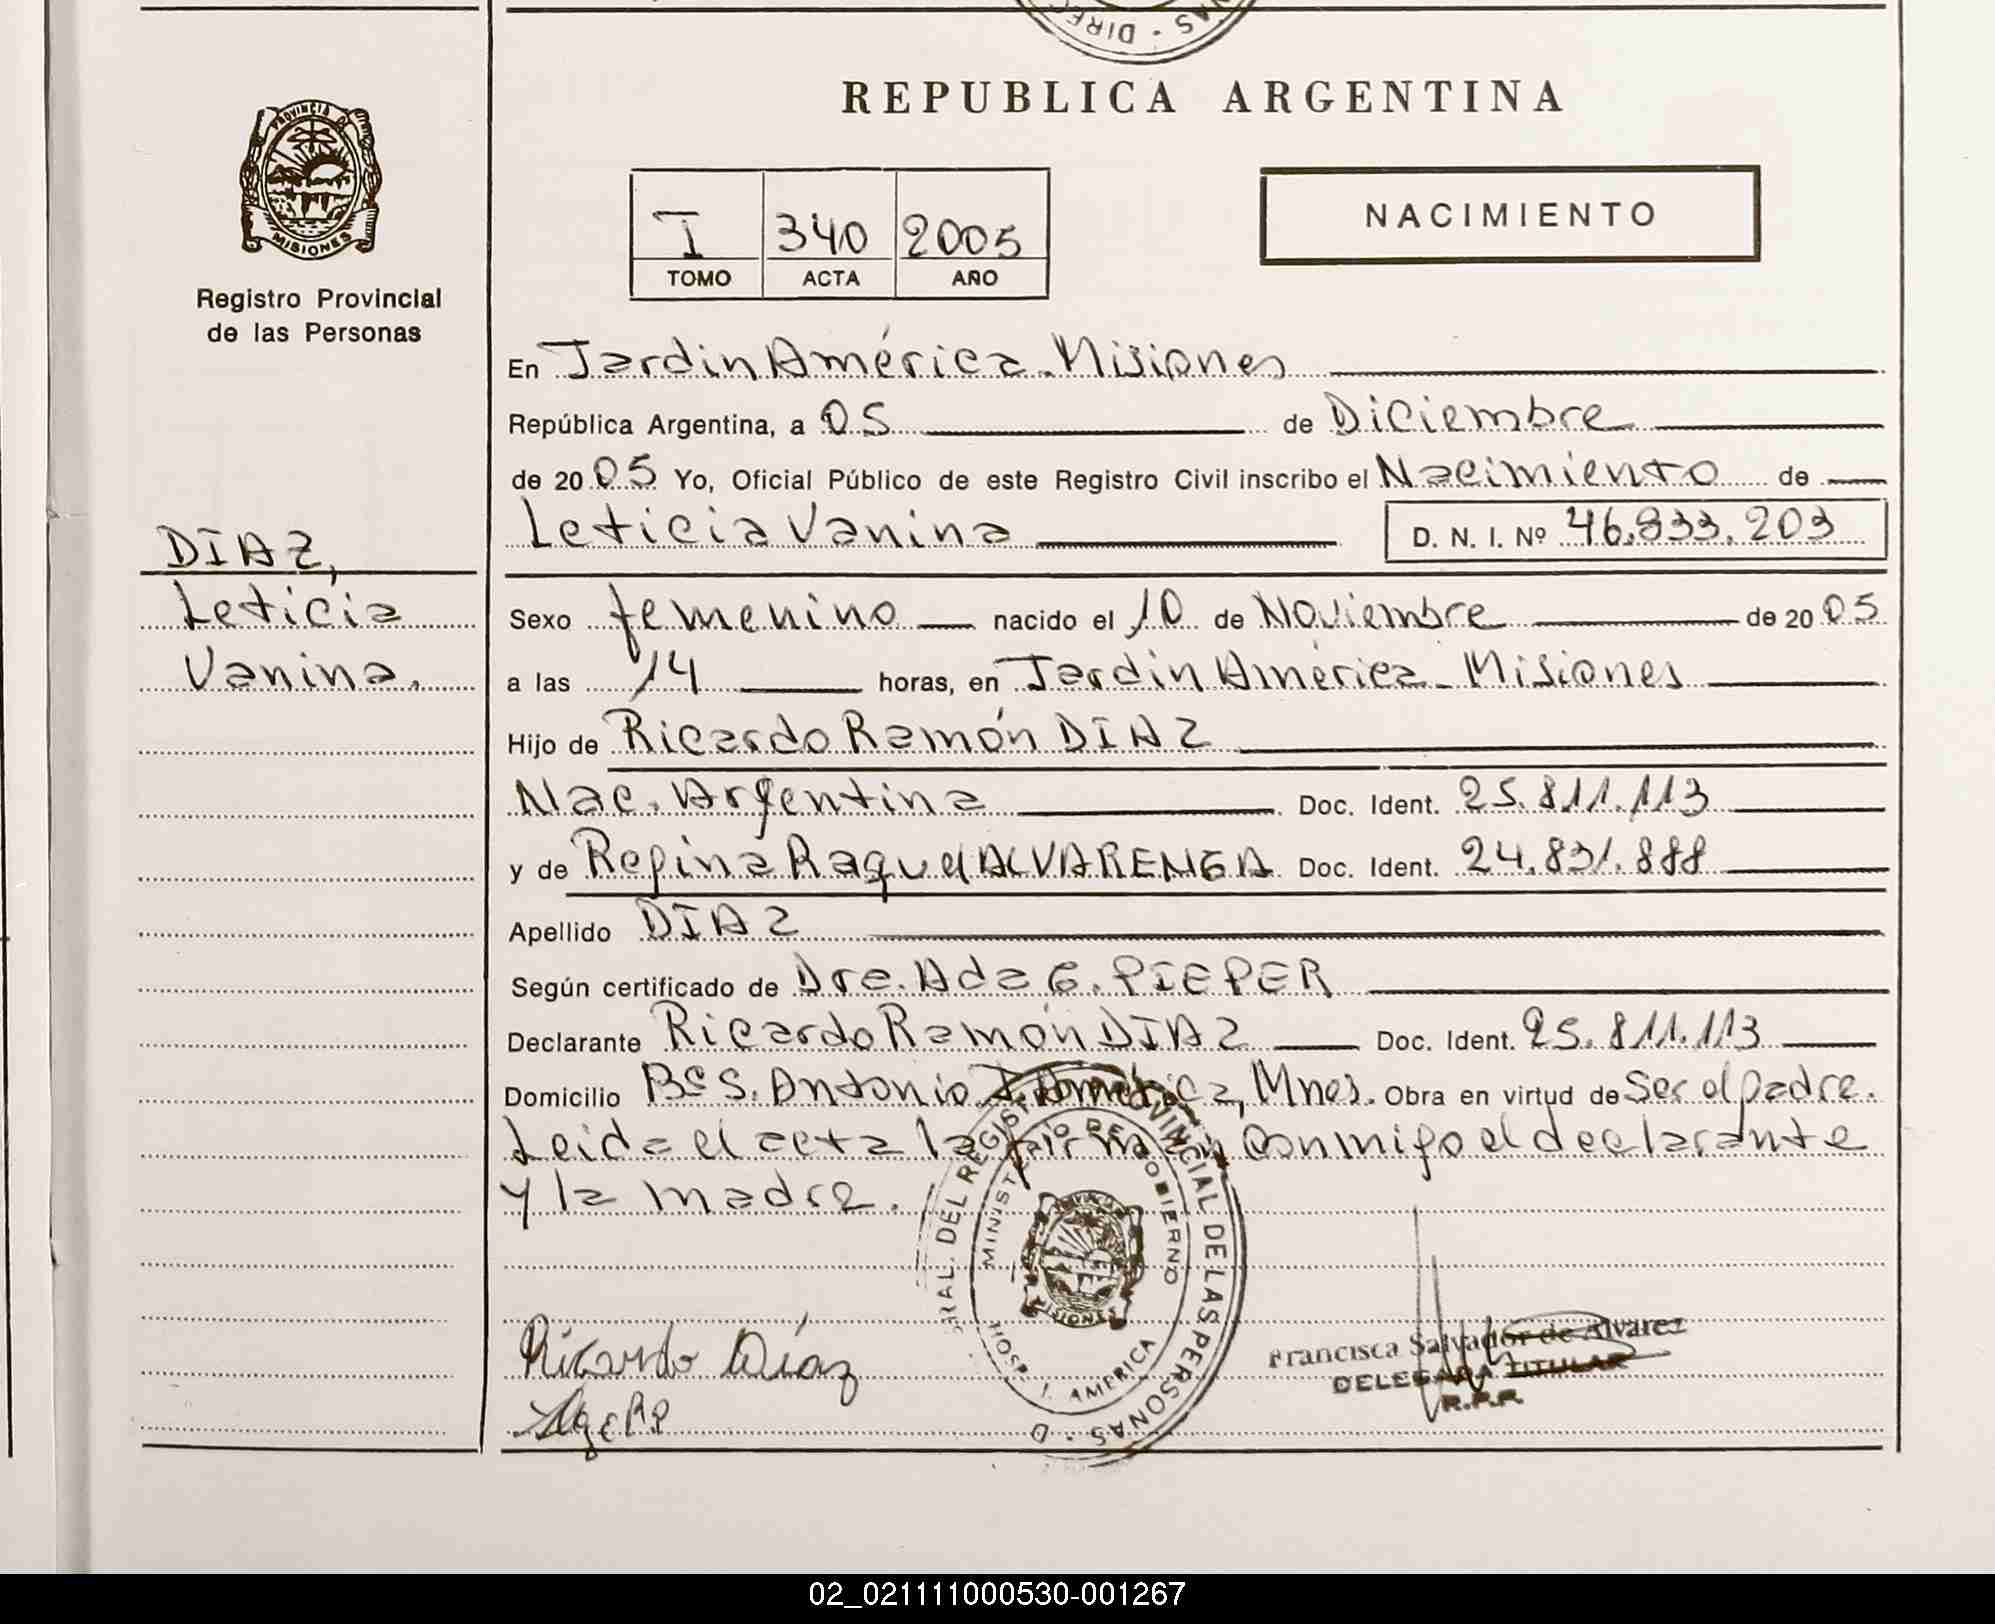 NAS - DIREC
REPUBLICA ARGENTINA
PROVINCIA DE
MISIONES
Registro Provincial
de las Personas
NACIMIENTO
I 340 2005
TOMO ACTA AÑO
En Jardin América - Misiones
República Argentina, a 05 de Diciembre
de 20 05 Yo, Oficial Público de este Registro Civil inscribo el Nacimiento de
Leticia Vanina D. N. I. Nº 46.833.203
DIAZ,
Leticia
Vanina.
Sexo femenino nacido el 10 de Noviembre de 20 05
a las 14 horas, en Jardin América - Misiones
Hijo de Ricardo Ramón DIAZ
Nac. Argentina Doc. Ident. 25.811.113
y de Regina Raquel ALVARENGA Doc. Ident. 24.831.888
Apellido DIAZ
Según certificado de Dra. Ada G. PIEPER
Declarante Ricardo Ramón DIAZ Doc. Ident. 25.811.113
Domicilio Bº S. Antonio J. América, Mnes. Obra en virtud de Ser el padre.
Leida el acta la firman conmigo el declarante
y la madre.
RAL. DEL REGISTRO PROVINCIAL DE LAS PERSONAS - D
MINISTERIO DE GOBIERNO
MISIONES
HOSP. J. AMERICA
Ricardo Díaz
Francisca Salvador de Alvarez
DELEGADA TITULAR
R.P.P.
02_021111000530-001267